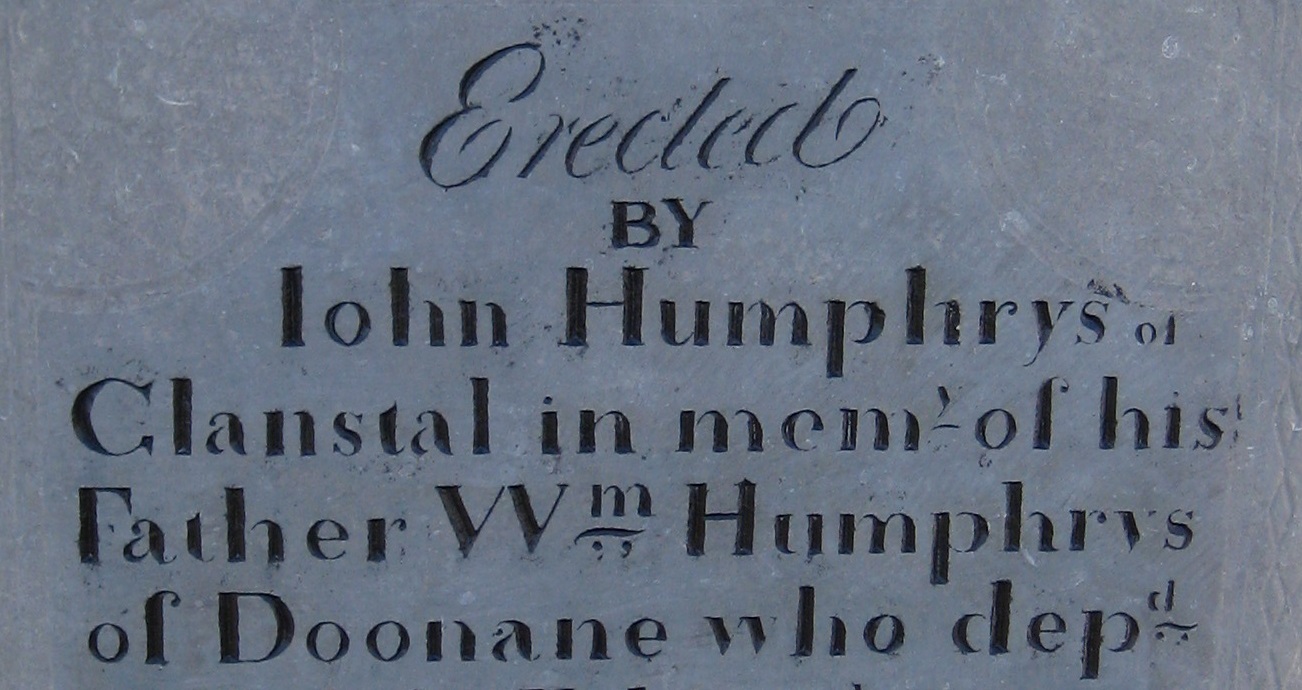 Erected
BY
Iohn Humphrys of
Clanstal in mem.ʳ of his
Father Wᵐ Humphrys
of Doonane who depᵈ